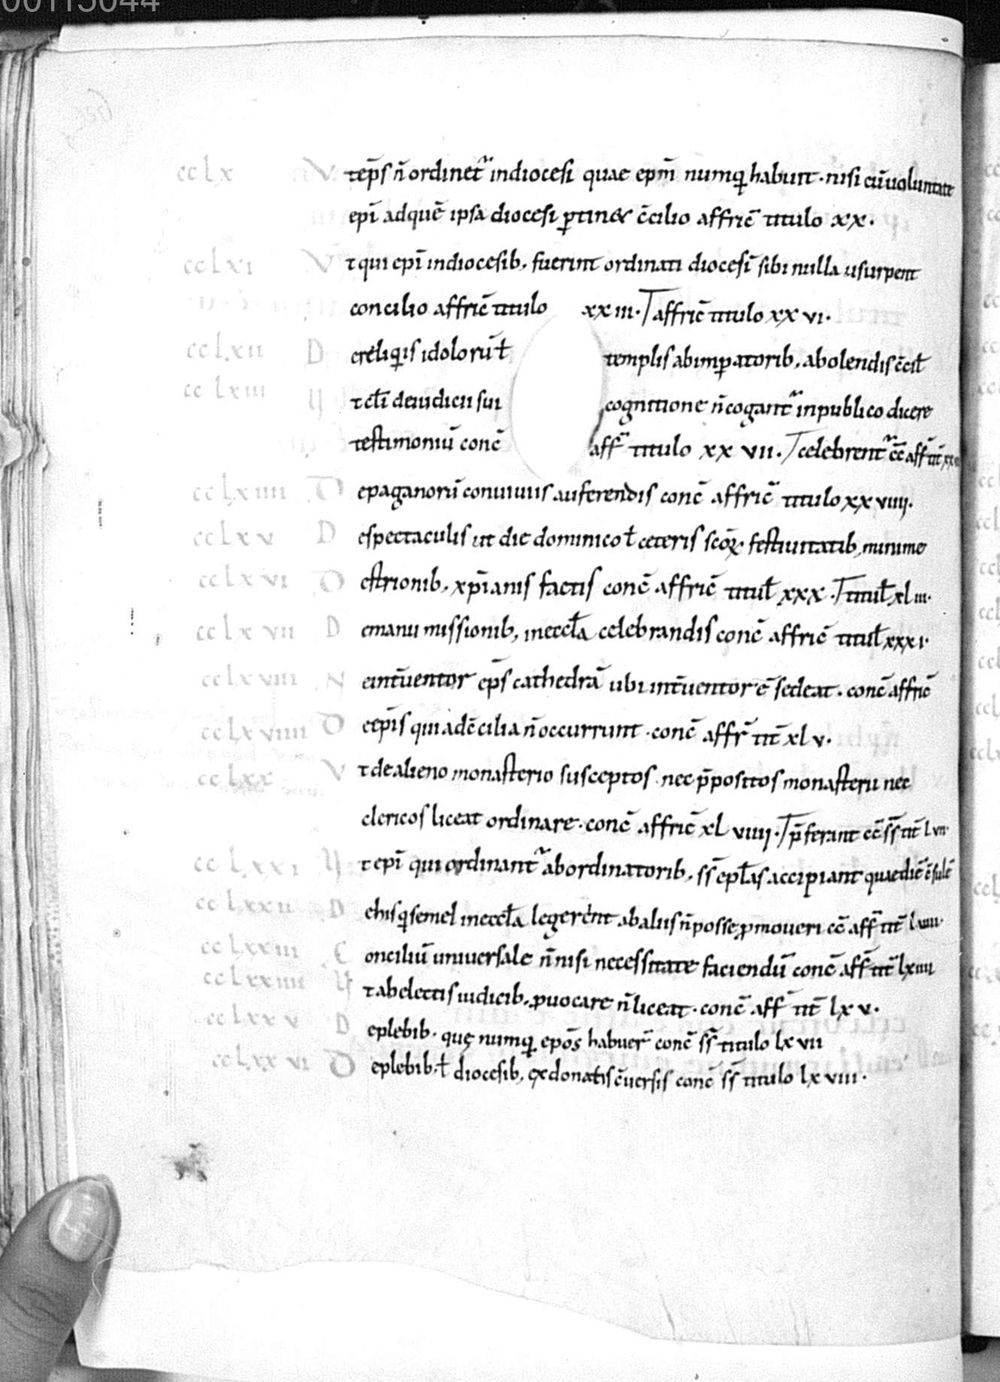 00113044
cclx V tep̄s n̄ ordinet᷑ in diocesi quae epm̄ numq̄ habuit · nisi cū uoluntate
epī ad quē ipsa diocesi ꝑtinet c̄cilio affric̄ titulo xx ·
cclxi V t qui epī in diocesib; fuerint ordinati diocesī sibi nulla usurpent
concilio affric̄ titulo xxiii · Ꞇ affric̄ titulo xxvi ·
cclxii D e reliq̄is idolorū ł templis ab imꝑatorib; abolendis c̄cił
cclxiii U t clī de iudicii sui cognitione n̄ cogant᷑ in publico dicere
testimoniū conc̄ aff᷑ titulo xxvii · Ꞇ celebrent᷑ ec̄c aff᷑ tit̄
cclxiiii D e paganorū conuiuiis auferendis conc̄ affric̄ titulo xxviiii ·
cclxv D e spectaculis ut die dominico ł ceteris sc̄oꝝ festiuitatib; minime
cclxvi D e strionib; xp̄ianis factis conc̄ affric̄ tituł xxx · Ꞇ tituł xliii ·
cclxvii D e manumissionib; in eccła celebrandis conc̄ affric̄ tituł xxxi ·
cclxviii N e int̄uentor ep̄s cathedrā ubi int̄uentor ē sedeat · conc̄ affric̄
cclxviiii D e ep̄is qui ad c̄cilia n̄ occurrunt · conc̄ affr̄ tit̄ xlv ·
cclxx V t de alieno monasterio susceptos · nec p̄positos monasterii nec
clericos liceat ordinare · conc̄ affric̄ xlviiii · Ꞇ p̄ferant ec̄ ss̄ tit̄ lvii ·
cclxxi U t epī qui ordinant᷑ ab ordinatorib; ss̄ epłas accipiant quae diē
cclxxii D e his q̄ semel in eccła legerint ab aliis n̄ posse ꝓmoueri cc̄ aff᷑ tit̄
cclxxiii C onciliū uniuersale n̄ nisi necessitate faciendū conc̄ aff᷑ tit̄ lxiiii
cclxxiiii U t ab electis iudicib; ꝓuocare n̄ liceat · conc̄ aff᷑ tit̄ lxv ·
cclxxv D e plebib; quę numq̄ epōs habuer̄ conc̄ ss̄ titulo lxvii
cclxxvi D e plebib; ł diocesib; ex donatis c̄uersis conc̄ ss̄ titulo lxviii ·